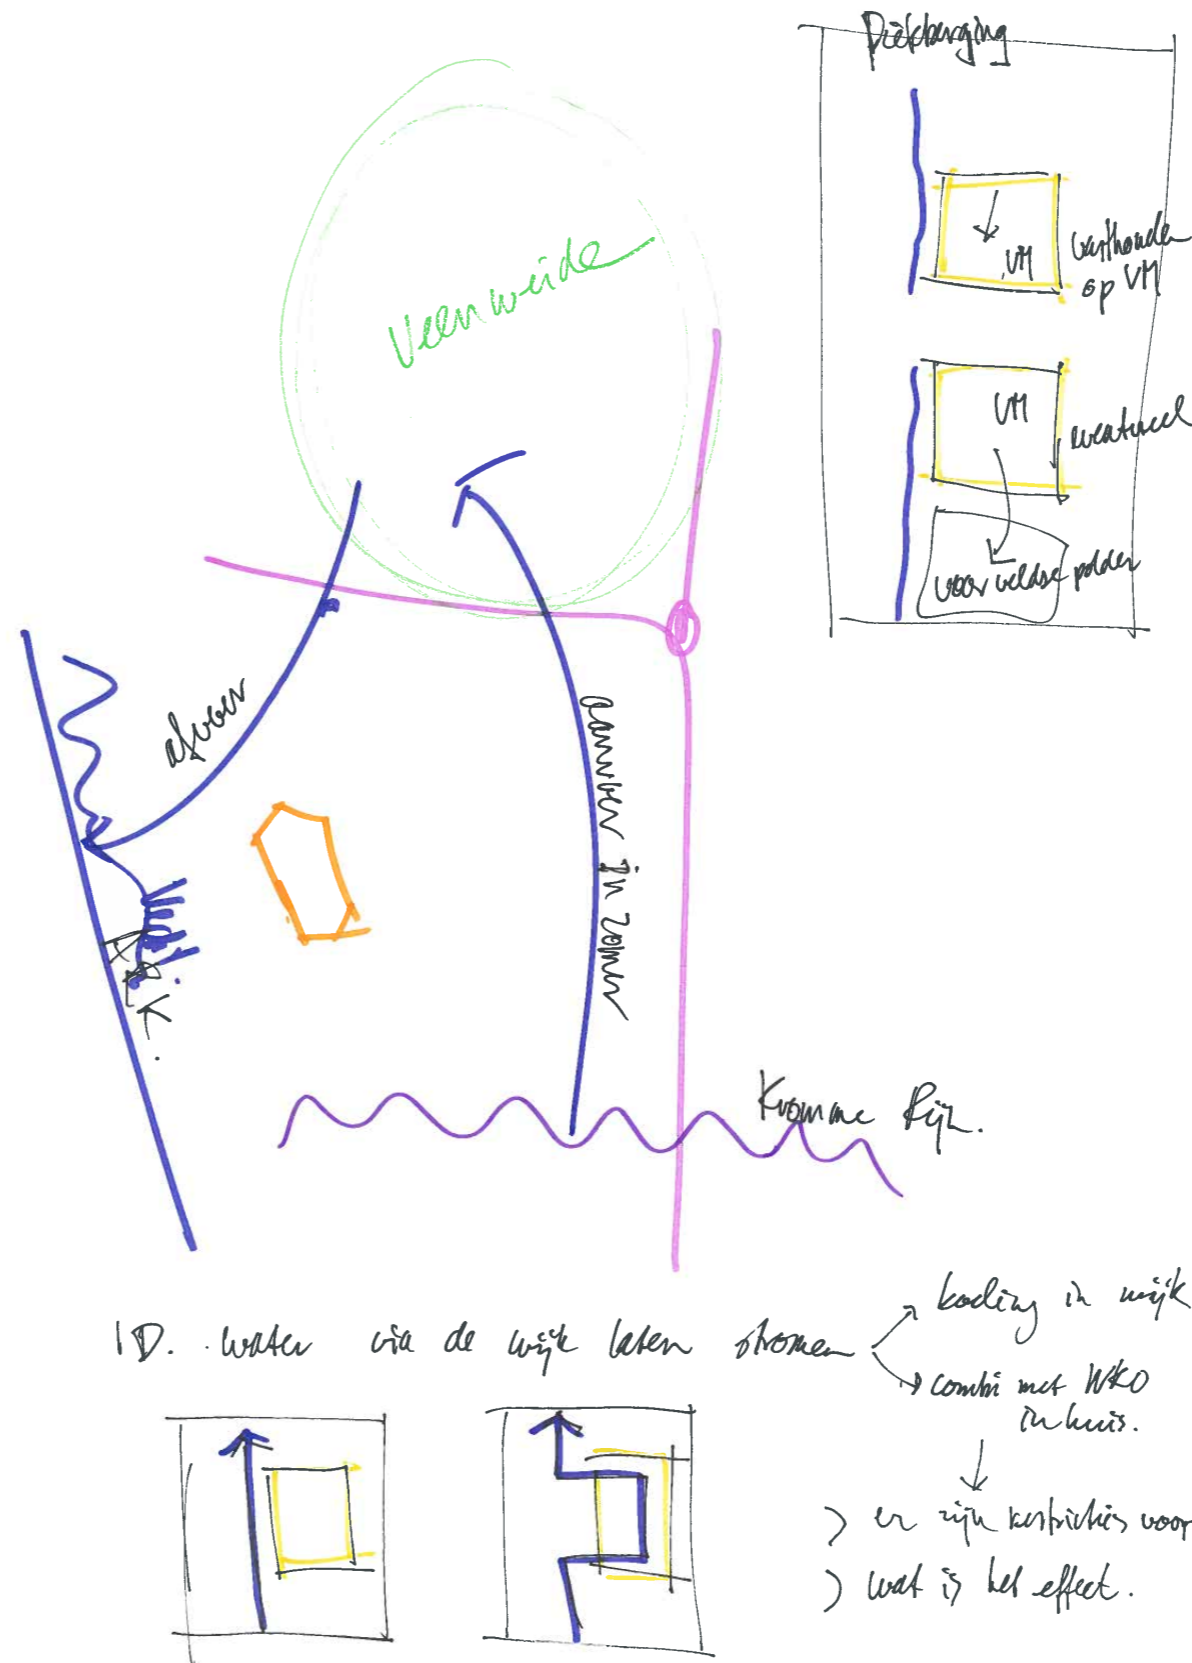 Piekberging
VM
vasthouden
op VM
VM
eventueel
voorveldse polder
Veenweide
afvoer
aanvoer in zomer
ARK.
Kromme Rijn.
ID. water via de wijk laten stromen
koeling in wijk
combi met WKO
in huis.
er zijn restricties voor
wat is het effect.